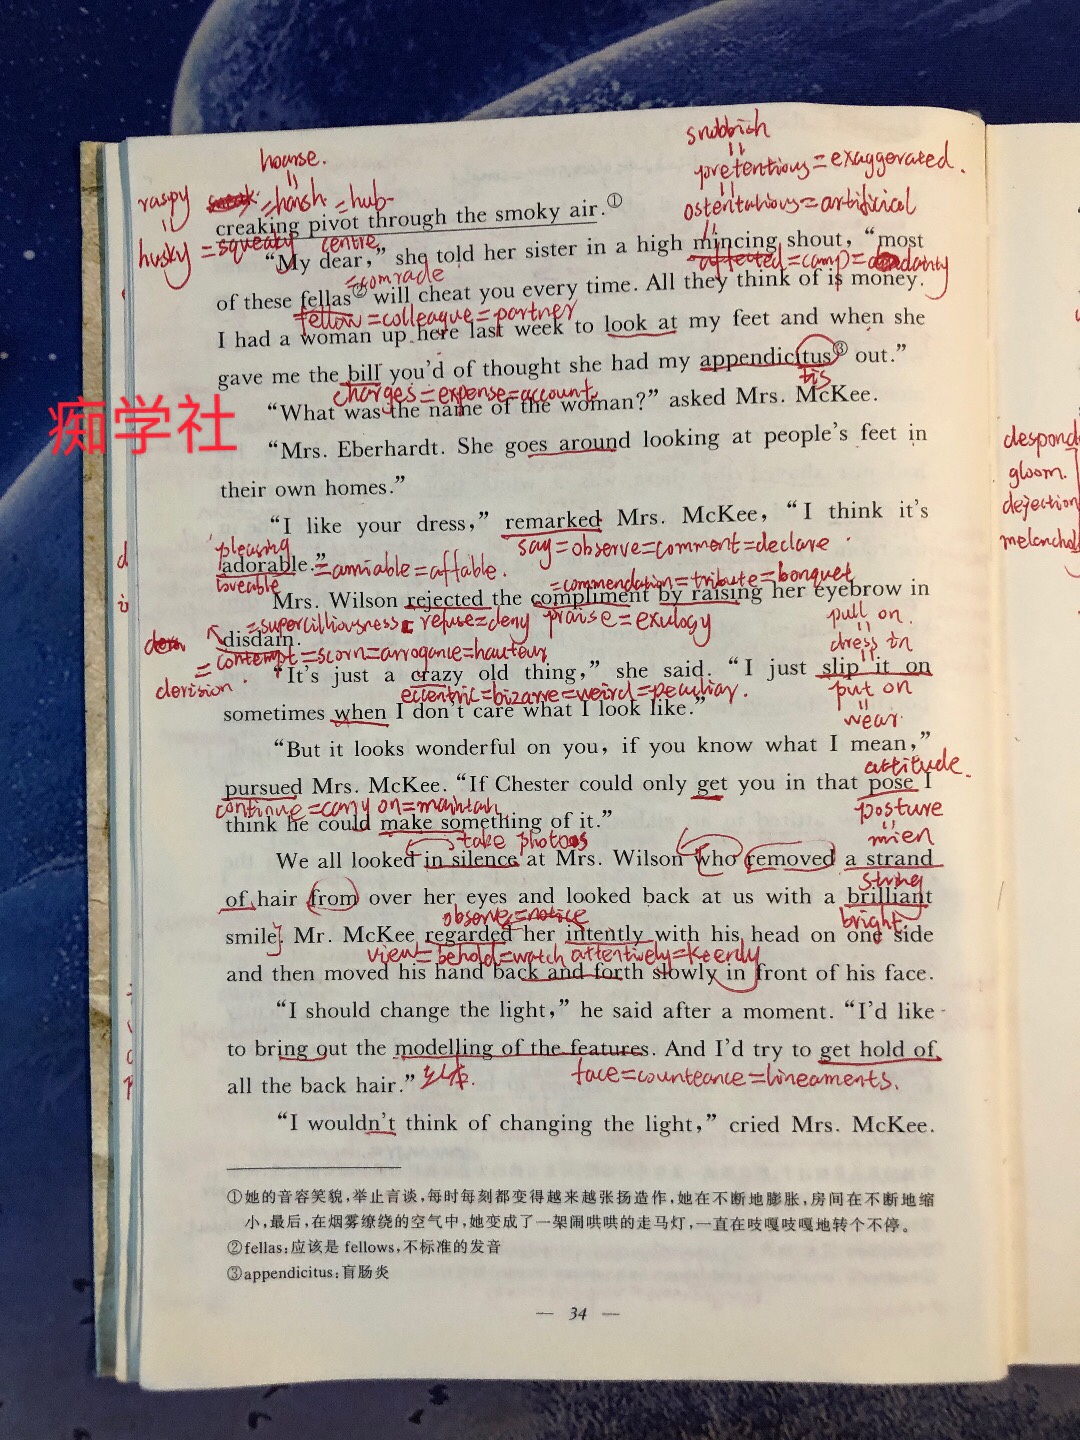 snobbish
hoarse.
pretentious = exaggerated.
raspy = harsh = hub-
ostentatious = artificial
creaking pivot through the smoky air.①
husky = squeaky centre
“My dear,” she told her sister in a high mincing shout, “most
= comrade
affected = camp = dandainty
of these fellas② will cheat you every time. All they think of is money.
fellow = colleague = partner
I had a woman up here last week to look at my feet and when she
gave me the bill you’d of thought she had my appendicitus③ out.”
tis
charges = expense = account
“What was the name of the woman?” asked Mrs. McKee.
痴学社
“Mrs. Eberhardt. She goes around looking at people’s feet in
their own homes.”
despond
gloom.
dejection
melanchol
“I like your dress,” remarked Mrs. McKee, “I think it’s
pleasing
say = observe = comment = declare
adorable.”
= amiable = affable.
loveable
= commendation = tribute = bonquet
Mrs. Wilson rejected the compliment by raising her eyebrow in
= supercilliousness refuse = deny praise = exulogy
pull on.
disdain.
dress in
= contempt = scorn = arrogance = hauteur
derision.
“It’s just a crazy old thing,” she said. “I just slip it on
eccentric = bizarre = weird = peculiar.
put on
sometimes when I don’t care what I look like.”
wear.
“But it looks wonderful on you, if you know what I mean,”
attitude.
pursued Mrs. McKee. “If Chester could only get you in that pose I
continue = carry on = maintain
posture
think he could make something of it.”
take photos
mien
We all looked in silence at Mrs. Wilson who removed a strand
string
of hair from over her eyes and looked back at us with a brilliant
observe = notice
bright
smile. Mr. McKee regarded her intently with his head on one side
view = behold = watch attentively = keenly
and then moved his hand back and forth slowly in front of his face.
“I should change the light,” he said after a moment. “I’d like
to bring out the modelling of the features. And I’d try to get hold of
face = counteance = lineaments.
all the back hair.”
“I wouldn’t think of changing the light,” cried Mrs. McKee.
①她的音容笑貌，举止言谈，每时每刻都变得越来越张扬造作，她在不断地膨胀，房间在不断地缩
小，最后，在烟雾缭绕的空气中，她变成了一架闹哄哄的走马灯，一直在吱嘎吱嘎地转个不停。
②fellas：应该是 fellows，不标准的发音
③appendicitus：盲肠炎
— 34 —